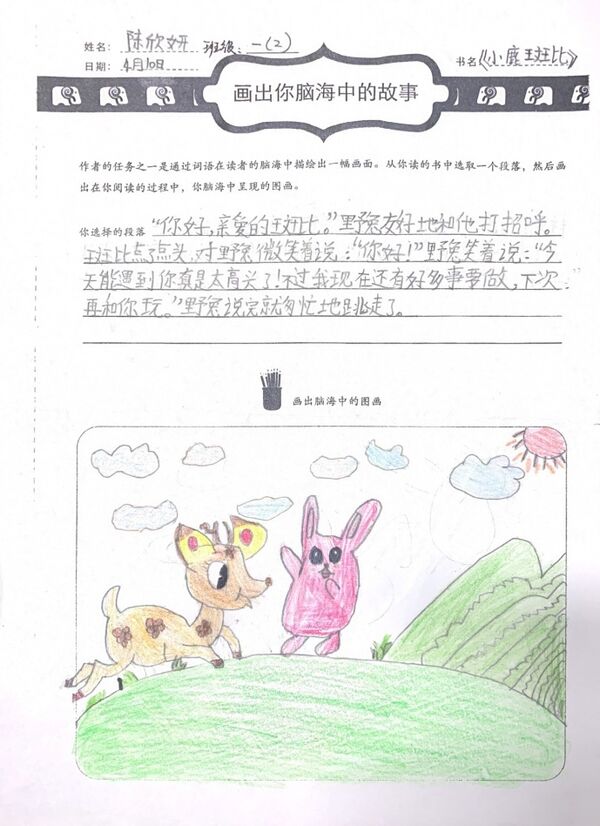 姓名： 陈欣妍 班级：一(2)
日期： 4月10日 书名《小鹿班比》
画出你脑海中的故事
作者的任务之一是通过词语在读者的脑海中描绘出一幅画面。从你读的书中选取一个段落，然后画
出在你阅读的过程中，你脑海中呈现的图画。
你选择的段落 “你好，亲爱的班比。”野兔友好地和他打招呼。
班比点了点头，对野兔微笑着说：“你好！”野兔笑着说：“今
天能遇到你真是太高兴了！不过我现在还有好多事要做，下次
再和你玩。”野兔说完就匆忙地跳走了。
画出脑海中的图画